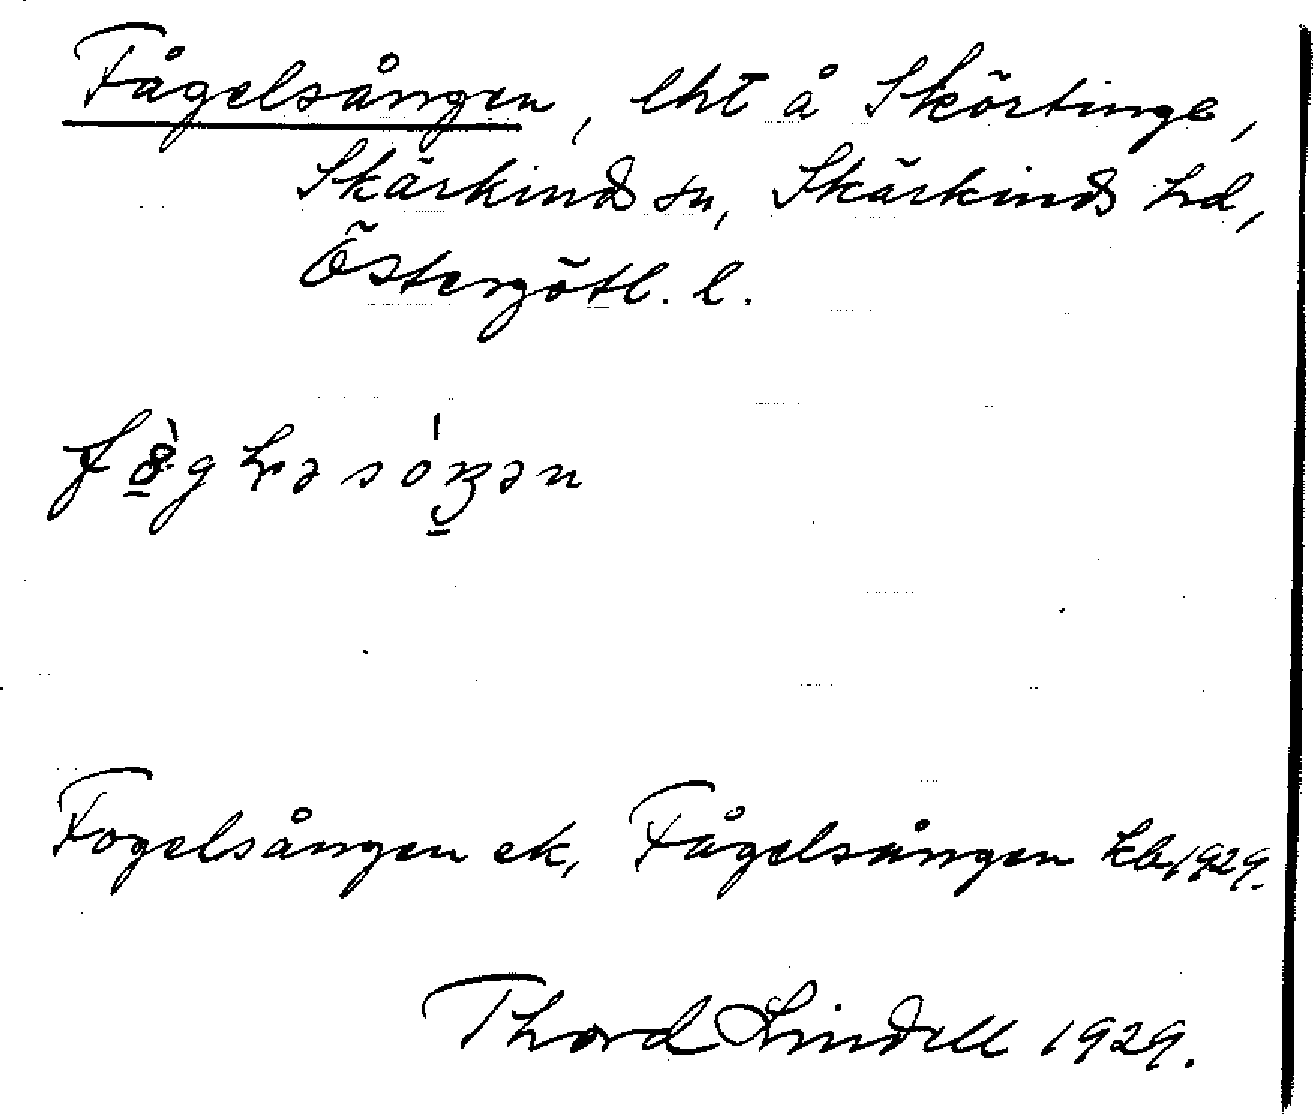 Fågelsången, lht å Skörtinge,
Skärkinds sn, Skärkinds hd,
Östergötl. l.
Fogelsången ek, Fågelsången kb 1929.
Thord Lindell 1929.